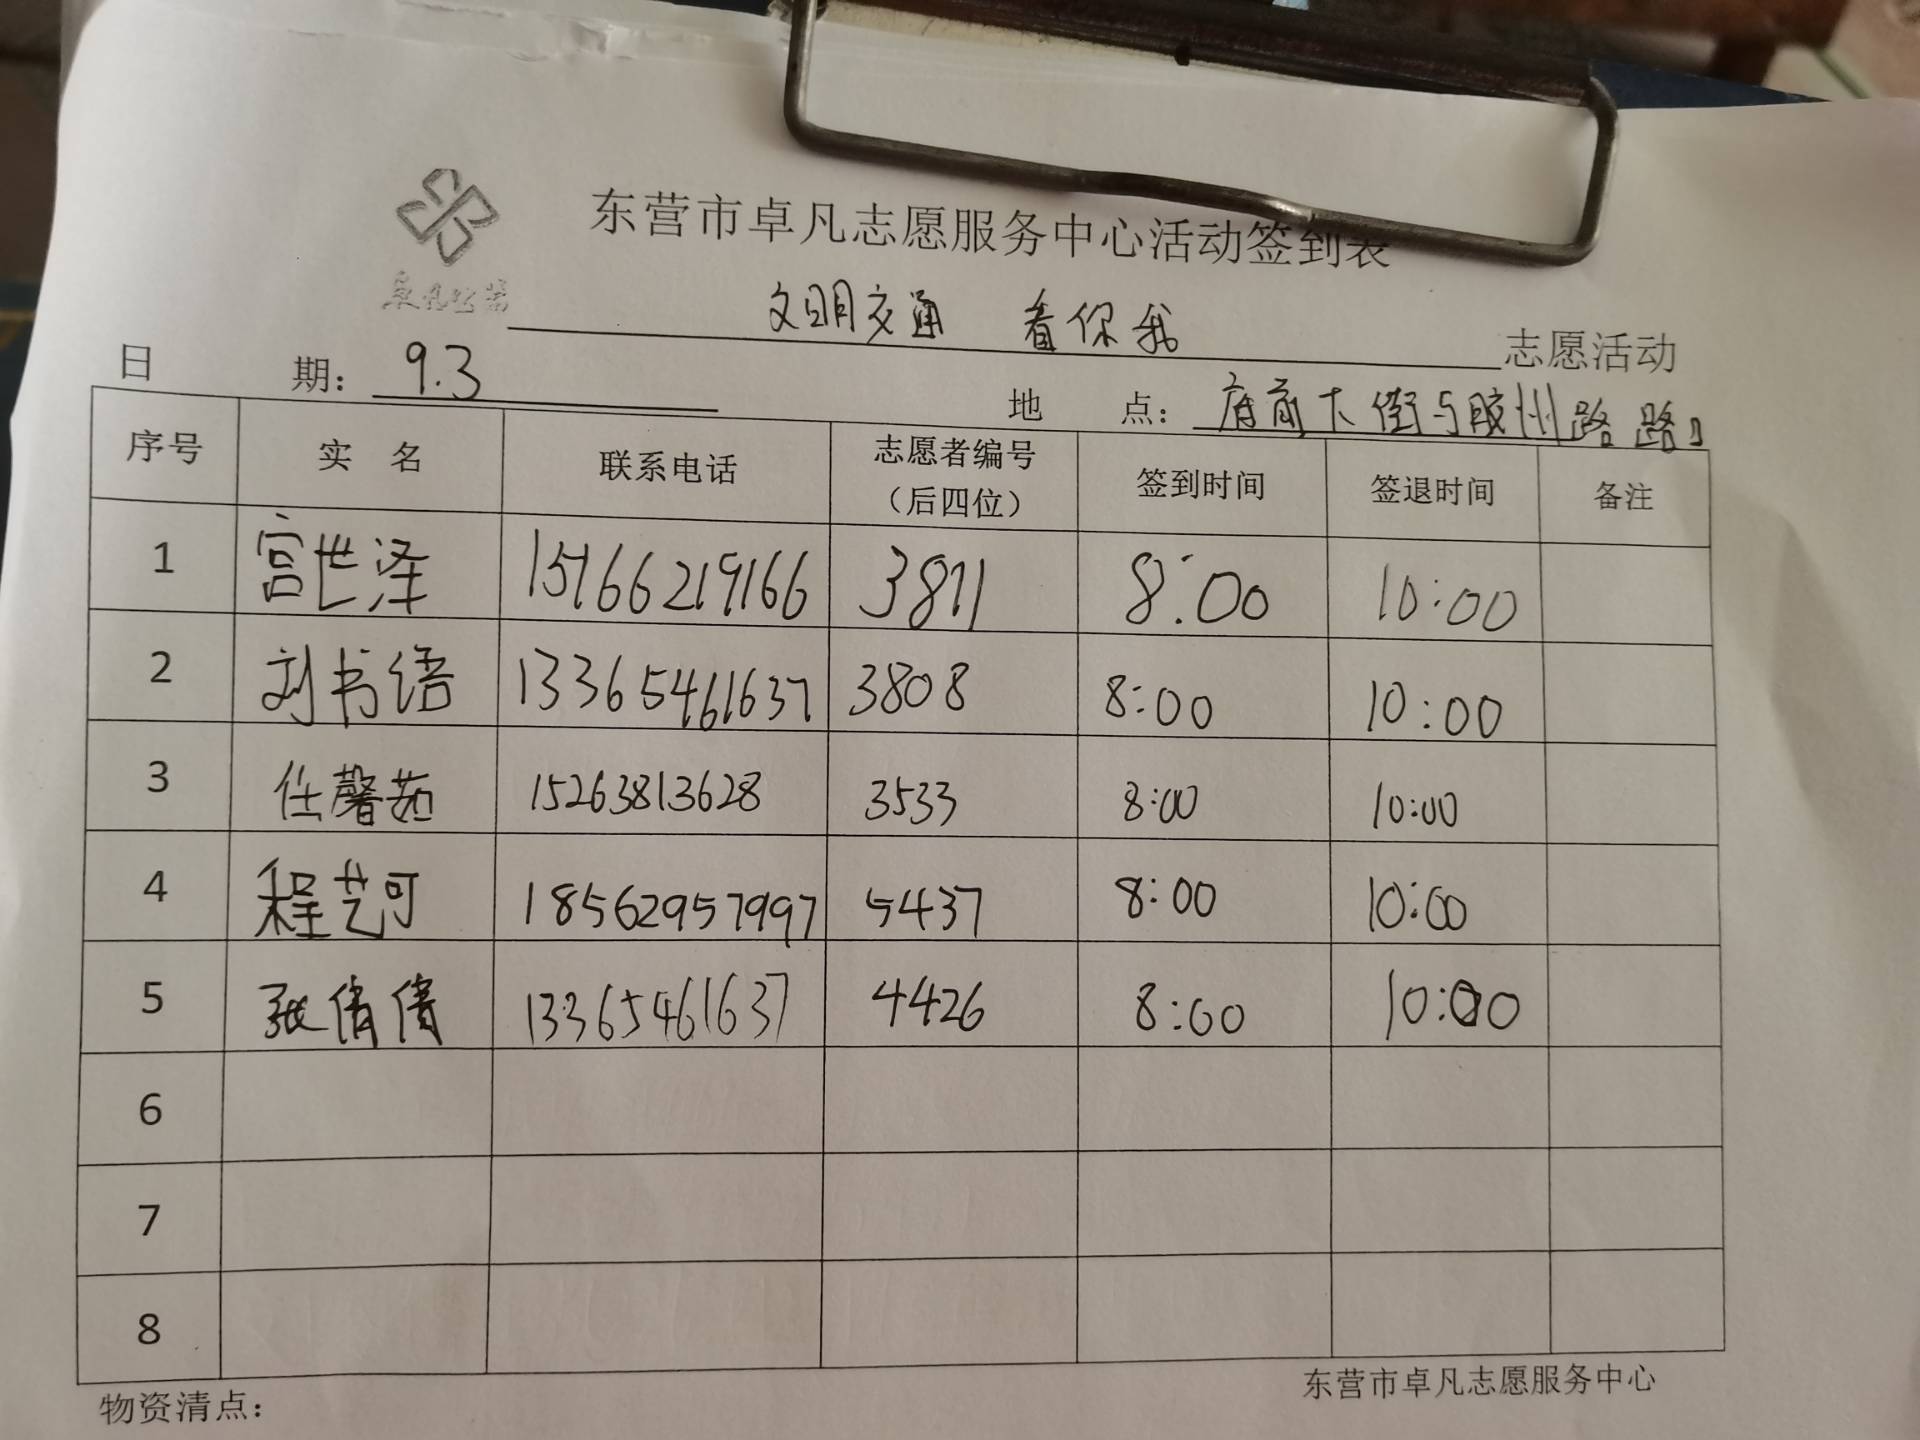 东营市卓凡志愿服务中心活动签到表
卓凡公益
文明交通 看你我 志愿活动
日 期：9.3 地 点：府前大街与胶州路路口
序号 实 名 联系电话 志愿者编号（后四位） 签到时间 签退时间 备注
1 宫世泽 15166219166 3811 8:00 10:00
2 刘书语 13365461637 3808 8:00 10:00
3 任馨茹 15263813628 3533 8:00 10:00
4 程艺可 18562957997 5437 8:00 10:00
5 张倩倩 13365461637 4426 8:00 10:00
6
7
8
物资清点： 东营市卓凡志愿服务中心